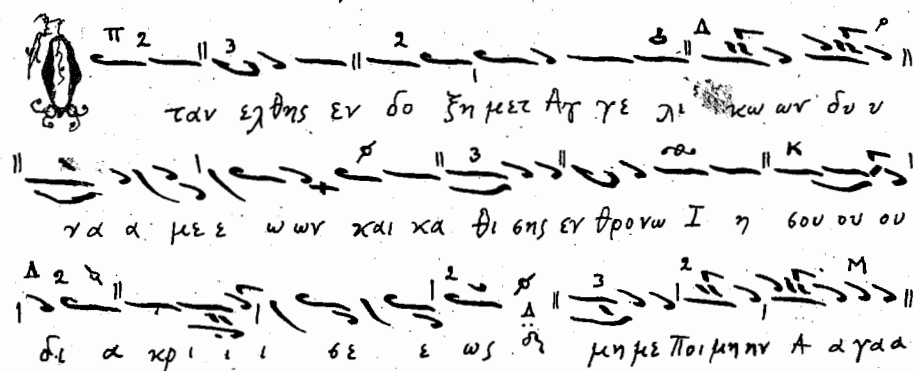 Ὁ ταν ελθης εν δο ξη μετ Αγ γε λι κω ων δυ υ
να α με ε ω ων και κα θι σης εν θρονω Ι η σου ου ου
δι α κρι ι ι σε ε ως μη με Ποι μη ην Α α γα α